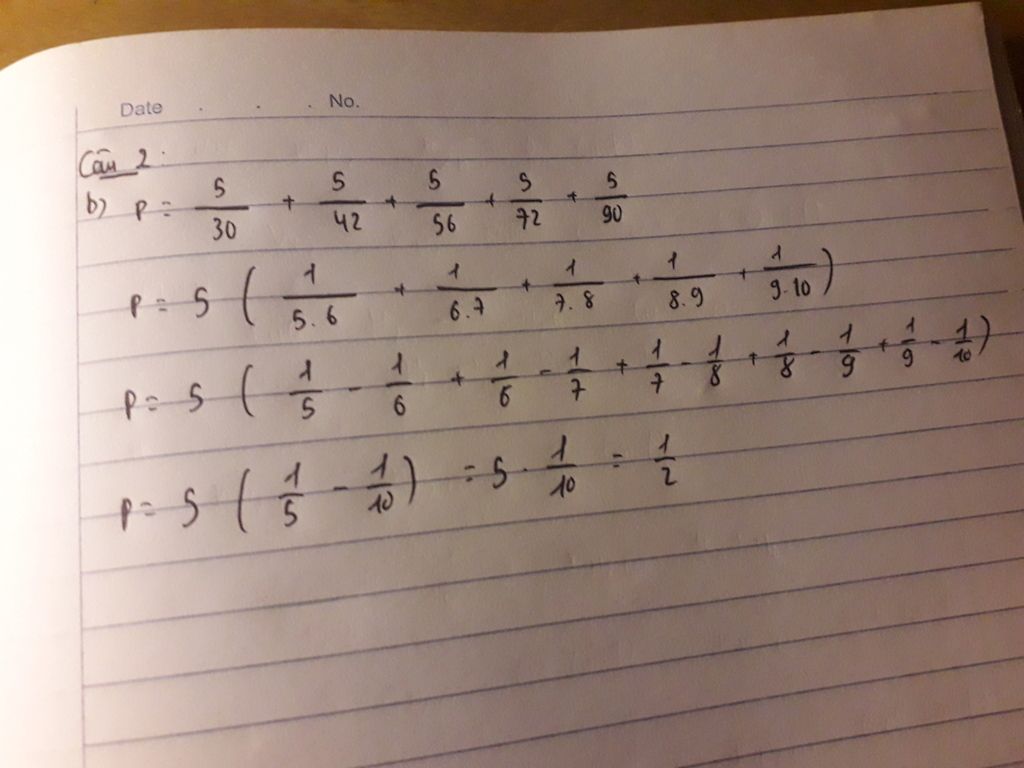 Date . . . No.
Câu 2.
b) P = 5/30 + 5/42 + 5/56 + 5/72 + 5/90
P = 5 ( 1/5.6 + 1/6.7 + 1/7.8 + 1/8.9 + 1/9.10 )
P = 5 ( 1/5 - 1/6 + 1/6 - 1/7 + 1/7 - 1/8 + 1/8 - 1/9 + 1/9 - 1/10 )
P = 5 ( 1/5 - 1/10 ) = 5 . 1/10 = 1/2